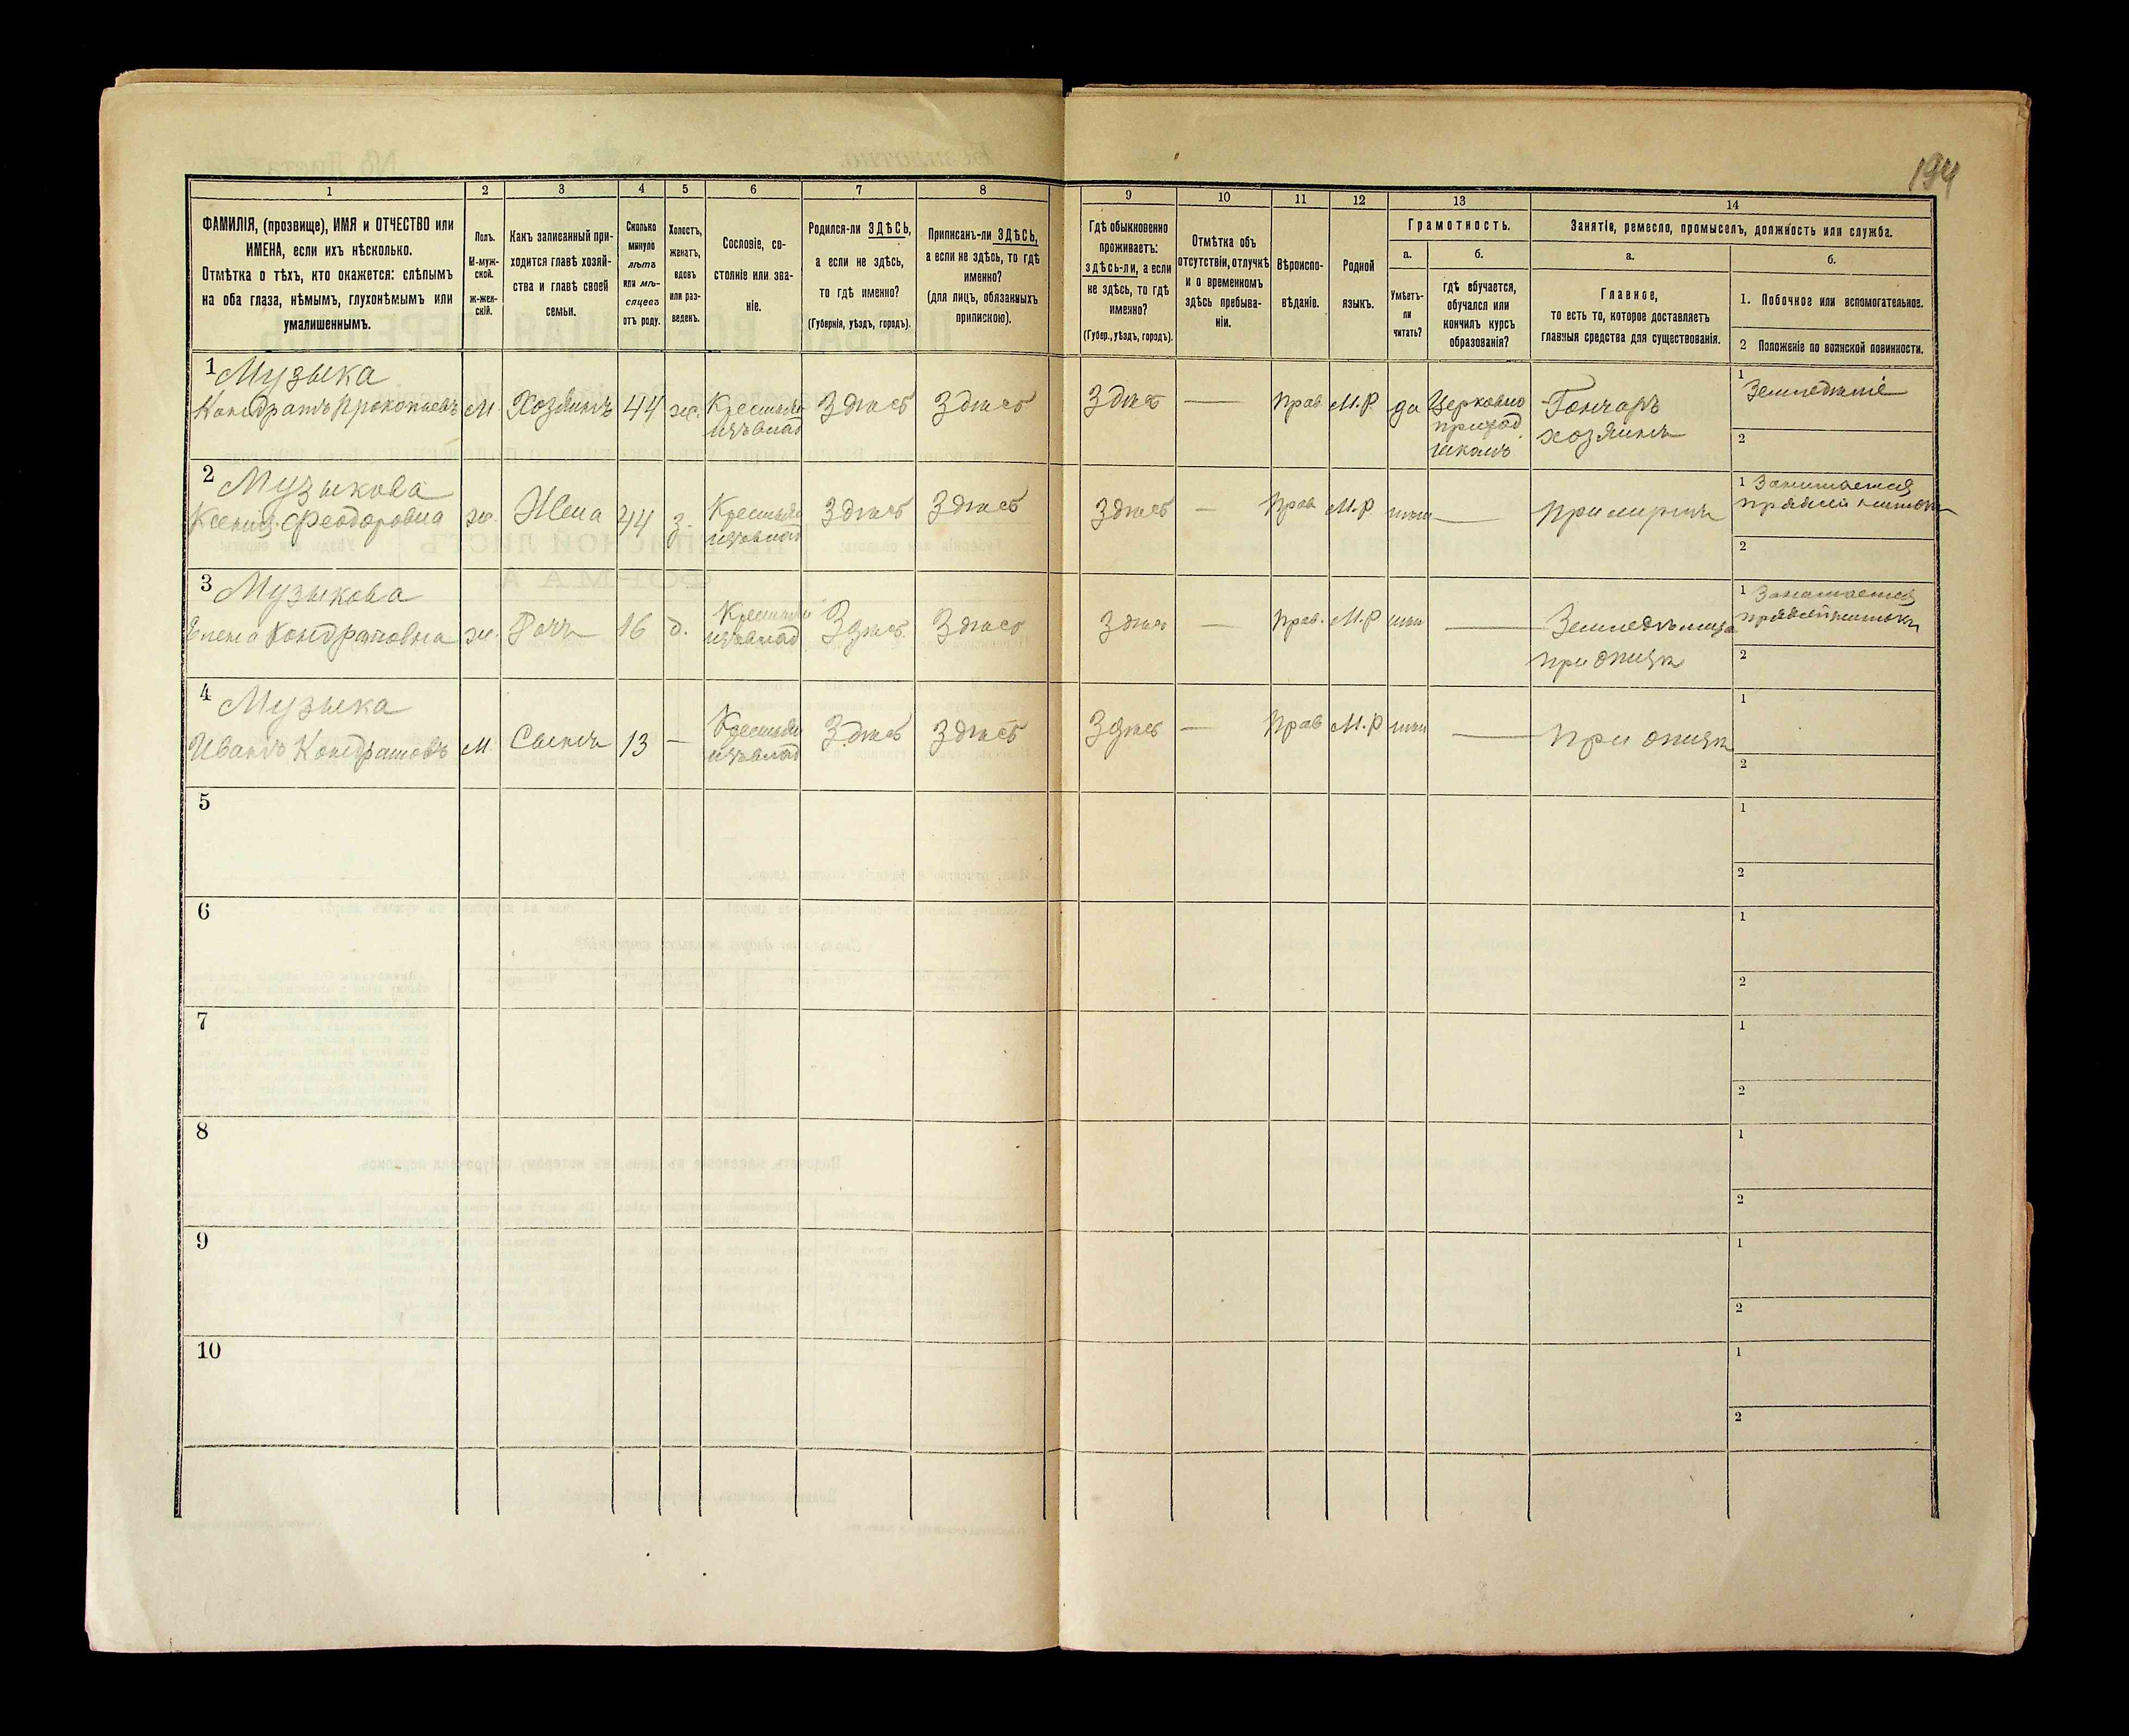 194
1
2
3
4
5
6
7
8
9
10
11
12
13
14
ФАМИЛІЯ, (прозвище), ИМЯ и ОТЧЕСТВО или
ИМЕНА, если ихъ нѣсколько.
Отмѣтка о тѣхъ, кто окажется: слѣпымъ
на оба глаза, нѣмымъ, глухонѣмымъ или
умалишеннымъ.
Полъ.
М-муж-
ской.
ж-жен-
скій.
Какъ записанный при-
ходится главѣ хозяй-
ства и главѣ своей
семьи.
Сколько
минуло
лѣтъ
или мѣ-
сяцевъ
отъ роду.
Холостъ,
женатъ,
вдовъ
или раз-
веденъ.
Сословіе, со-
стояніе или зва-
ніе.
Родился-ли ЗДѢСЬ,
а если не здѣсь,
то гдѣ именно?
(Губернія, уѣздъ, городъ).
Приписанъ-ли ЗДѢСЬ,
а если не здѣсь, то гдѣ
именно?
(для лицъ, обязанныхъ
припискою).
Гдѣ обыкновенно
проживаетъ:
здѣсь-ли, а если
не здѣсь, то гдѣ
именно?
(Губер., уѣздъ, городъ).
Отмѣтка объ
отсутствіи, отлучкѣ
и о временномъ
здѣсь пребыва-
ніи.
Вѣроиспо-
вѣданіе.
Родной
языкъ.
Грамотность.
а.
Умѣетъ-
ли
читать?
б.
гдѣ обучается,
обучался или
кончилъ курсъ
образованія?
Занятіе, ремесло, промыселъ, должность или служба.
а.
Главное,
то есть то, которое доставляетъ
главныя средства для существованія.
б.
1. Побочное или вспомогательное.
2 Положеніе по воинской повинности.
1 Музыка
Кондратъ Прокопьевъ
М.
Хозяинъ
44
ж.
Крестьян
изъ влад
Здѣсь
Здѣсь
Здѣсь
—
Прав
М.Р.
да
Церковно
приход
школѣ
Гончаръ
хозяинъ
1
Земледѣліе
2
2 Музыкова
Ксенія Феодоровна
ж.
Жена
44
з.
Крестьян
изъ влад
Здѣсь
Здѣсь
Здѣсь
—
Прав
М.Р.
—
При мужѣ
1 Занимается
пряжей нитокъ
2
3 Музыкова
Елена Кондратовна
ж.
Дочь
16
д.
Крестьян
изъ влад
Здѣсь
Здѣсь
Здѣсь
—
Прав.
М.Р
—
при отцѣ
1 Занимается
2
4 Музыка
Иванъ Кондратовъ
М.
Сынъ
13
—
Крестьян
изъ влад
Здѣсь
Здѣсь
Здѣсь
—
Прав
М.Р
—
При отцѣ
1
2
5
1
2
6
1
2
7
1
2
8
1
2
9
1
2
10
1
2